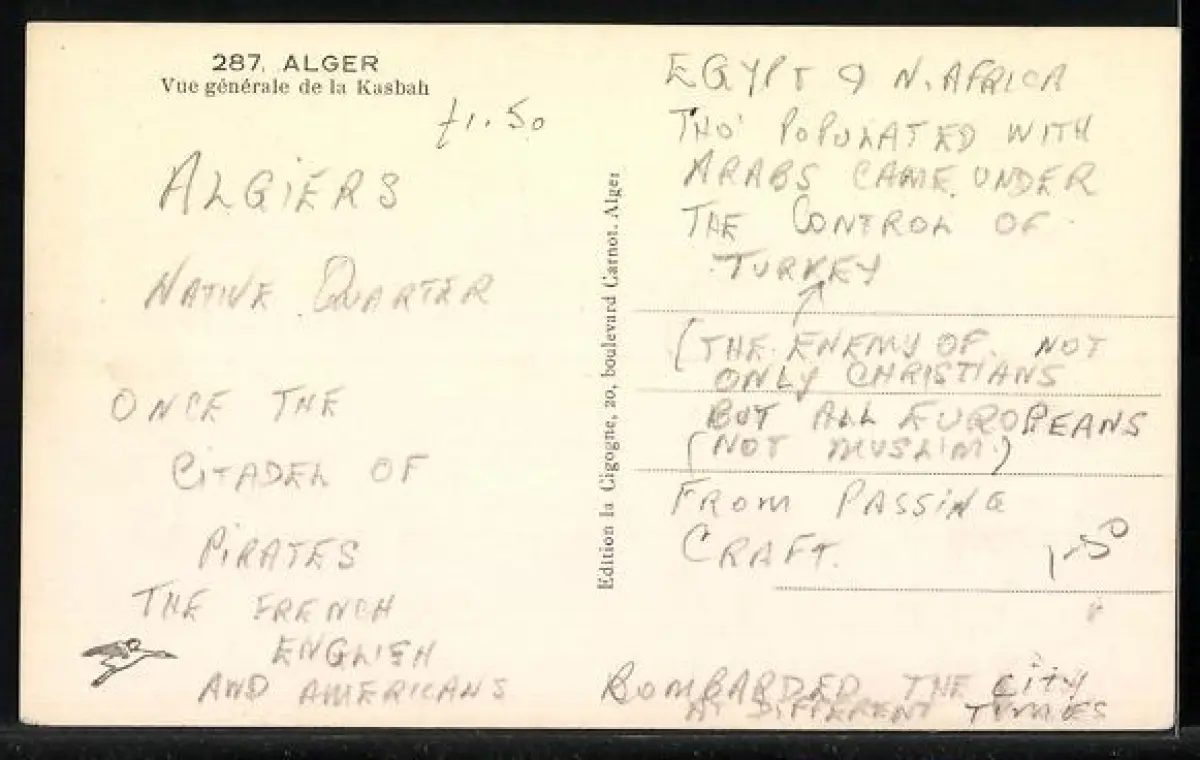 287. ALGER
Vue générale de la Kasbah
£1.50
ALGIERS
NATIVE QUARTER
ONCE THE
CITADEL OF
PIRATES
THE FRENCH
ENGLISH
AND AMERICANS
Edition la Cigogne, 20, boulevard Carnot. Alger
EGYPT & N. AFRICA
THO' POPULATED WITH
ARABS CAME UNDER
THE CONTROL OF
TURKEY
(THE ENEMY OF NOT
ONLY CHRISTIANS
BUT ALL EUROPEANS
(NOT MUSLIM)
FROM PASSING
CRAFT.
1-50
BOMBARDED THE CITY
AT DIFFERENT TIMES